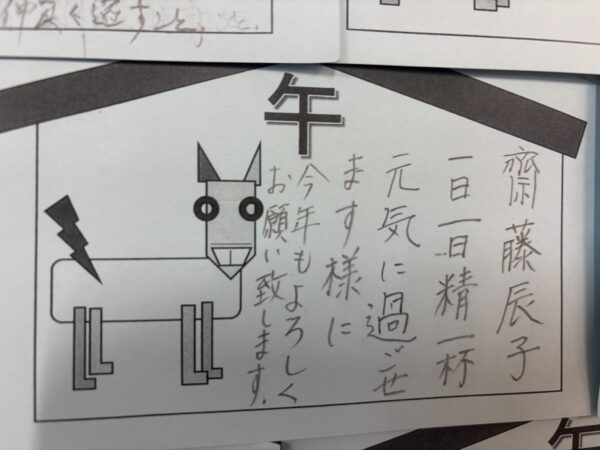 仲良く過すこと、
午
齋藤辰子
一日一日精一杯
元気に過ごせ
ます様に
今年もよろしく
お願い致します.
午